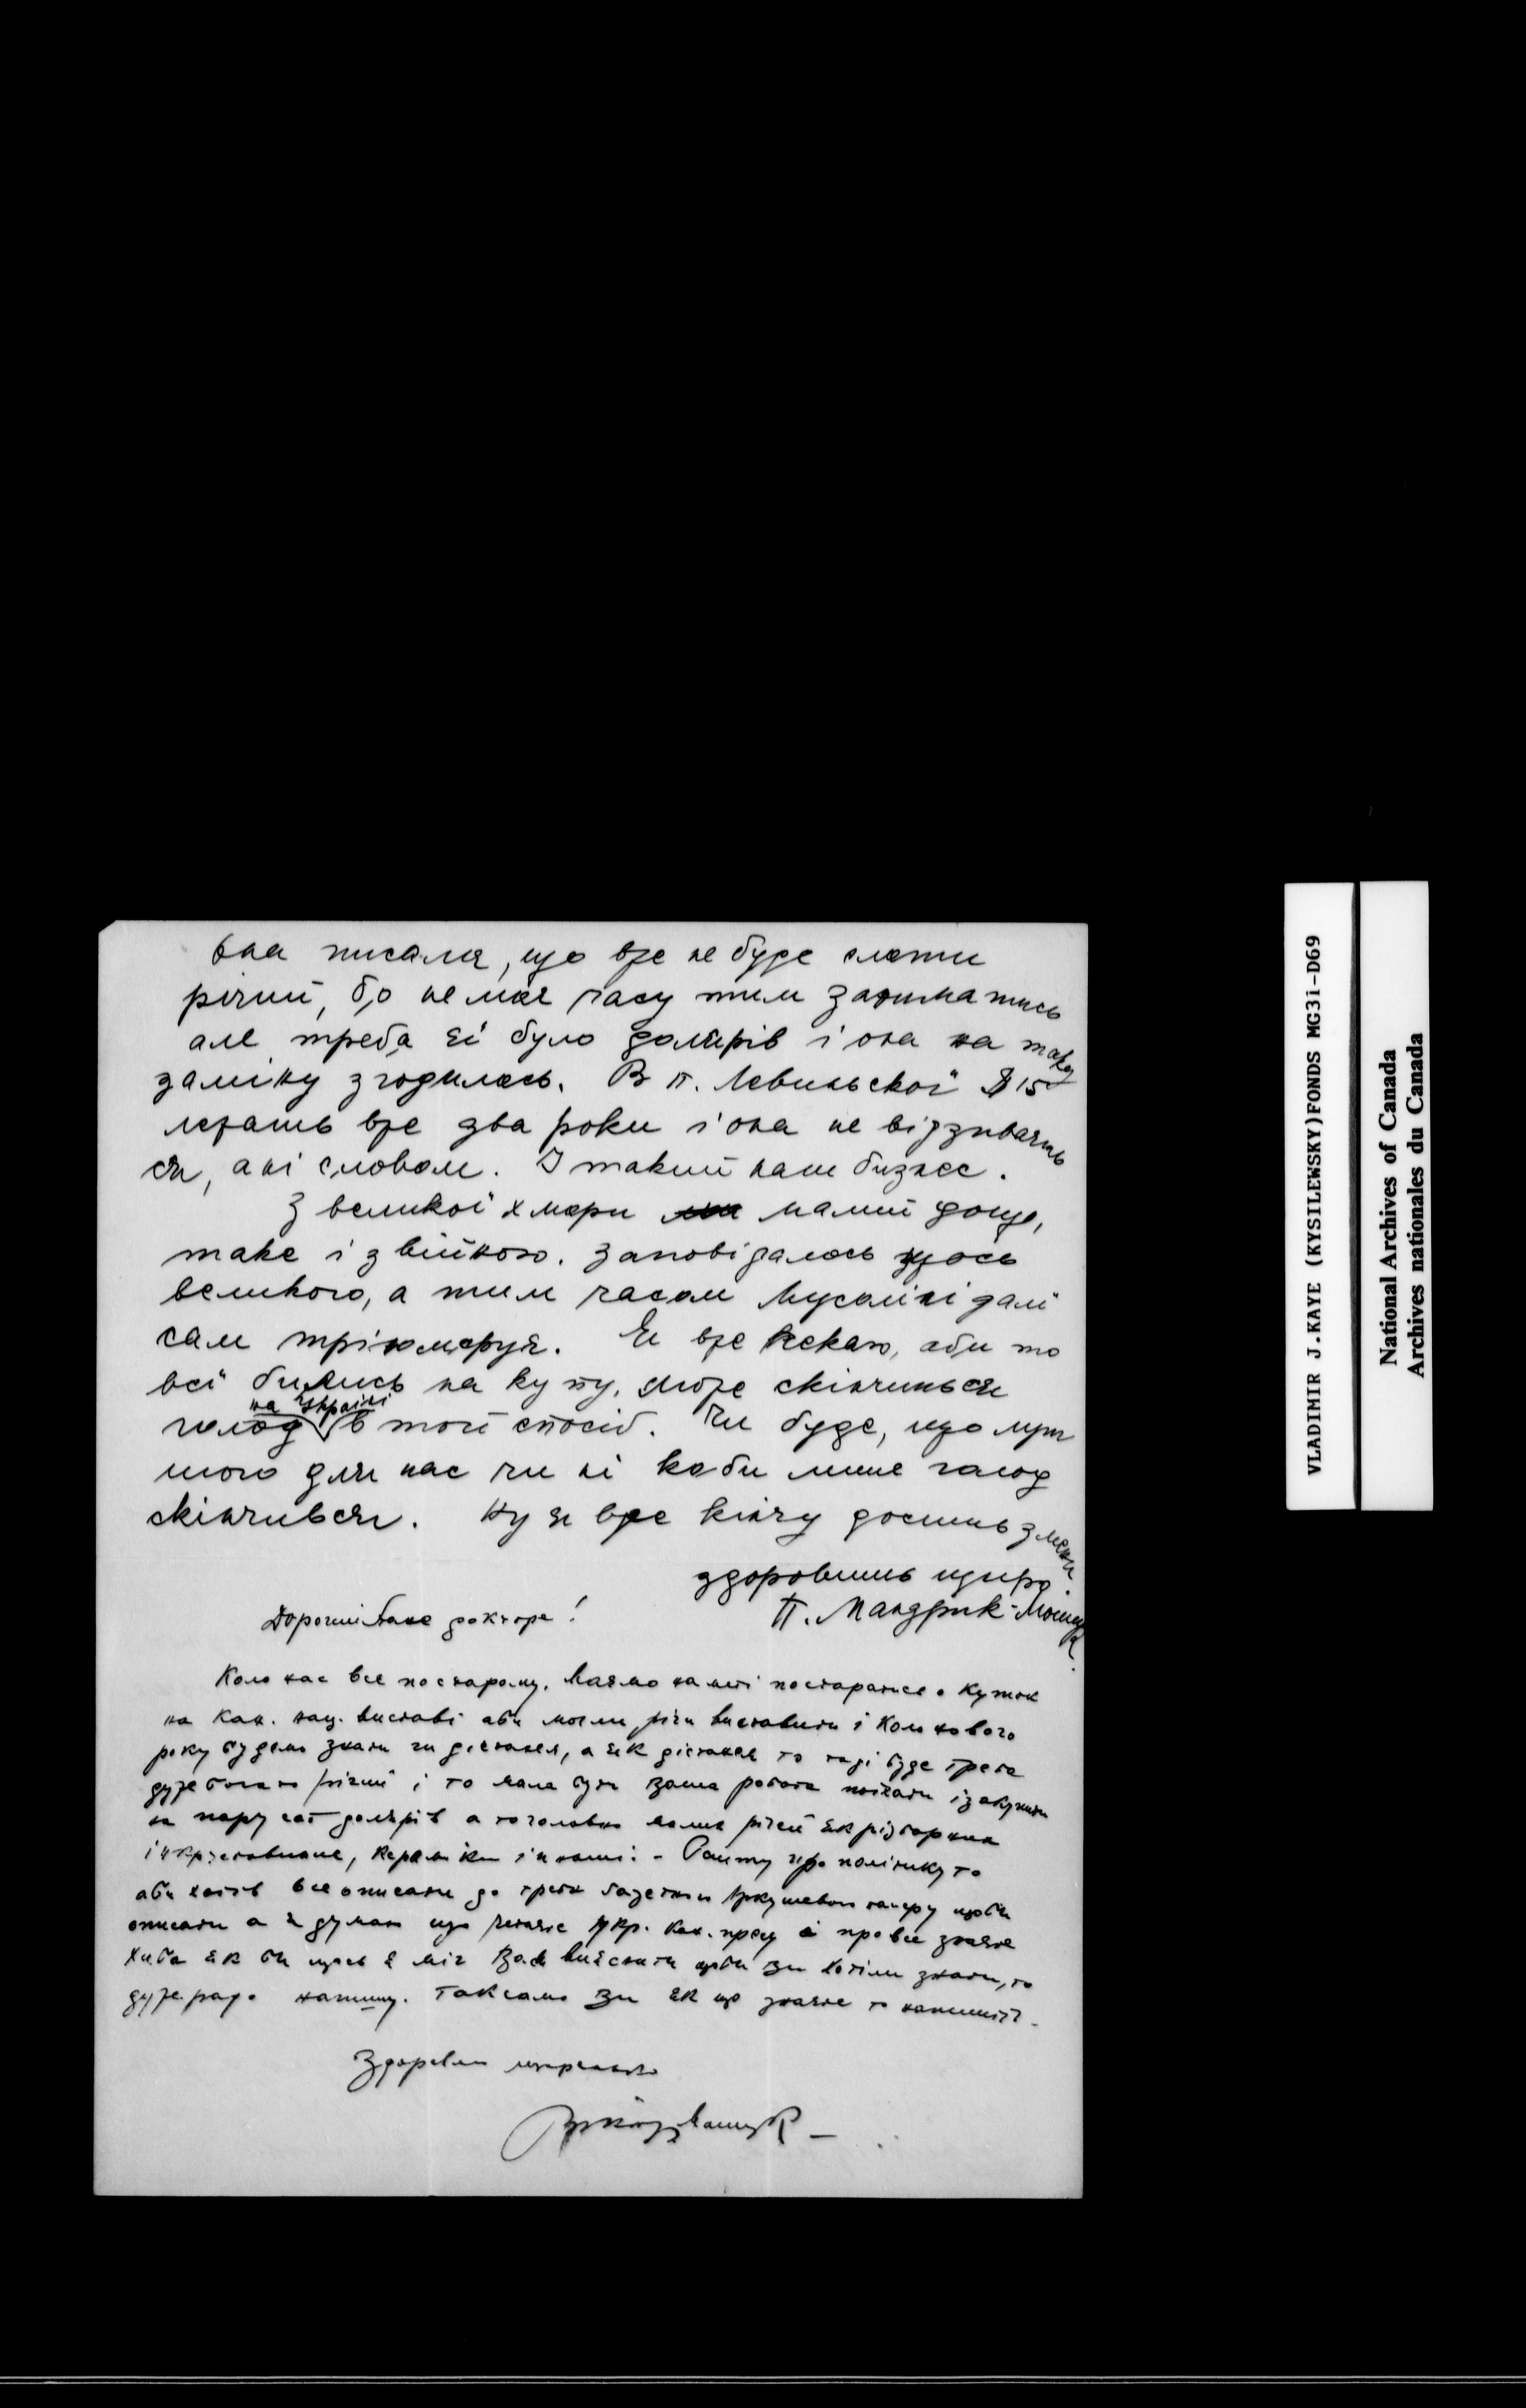 она писала, що вже не буде слати
річий, бо не має часу тим заниматись
але треба єї було долярів і она на таку
заміну згодилась. В п. Левицької $15
лежать вже два роки і она не відзиваєть
ся, ані словом. І такий наш бизнес.
З великої хмари малий дощ,
таке і з війною. Заповідалось щось
великого, а тим часом Мусоліні далі
сам тріюмфує. Я вже чекаю, аби то
всі бились на купу, може скінчиться
голод на Україні в той спосіб. Чи буде, що луч
шого для нас чи ні коби лише голод
скінчився. Ну я вже кінчу досить з мене
здоровить щиро.
П. Мандрик-Мошук.
Дорогий Пане докторе!
Коло нас все постарому. Маємо на меті постаратися о куток
на Кан. нац. виставі аби могли річи виставити і коло нового
року будемо знати чи дістанем, а як дістанем то тоді буде треба
дуже богато річий і то мала бути Ваша робота поїхати і закупити
за пару сот долярів а то головно малих річей як різбарких
і інкрустованих, кераміки і т. инші. - про політику то
аби хотів все описати до треба паперу щоби
описати а я думаю що читаєте Укр. Кан. пресу і про все знаєте
хиба як би щось я міг Вам вияснити щоби Ви хотіли знати, то
дуже радо напишу. Таксамо Ви як що знаєте то напишіть.
Здоровлю
VLADIMIR J.KAYE (KYSILEWSKY)FONDS MG31-D69
National Archives of Canada
Archives nationales du Canada